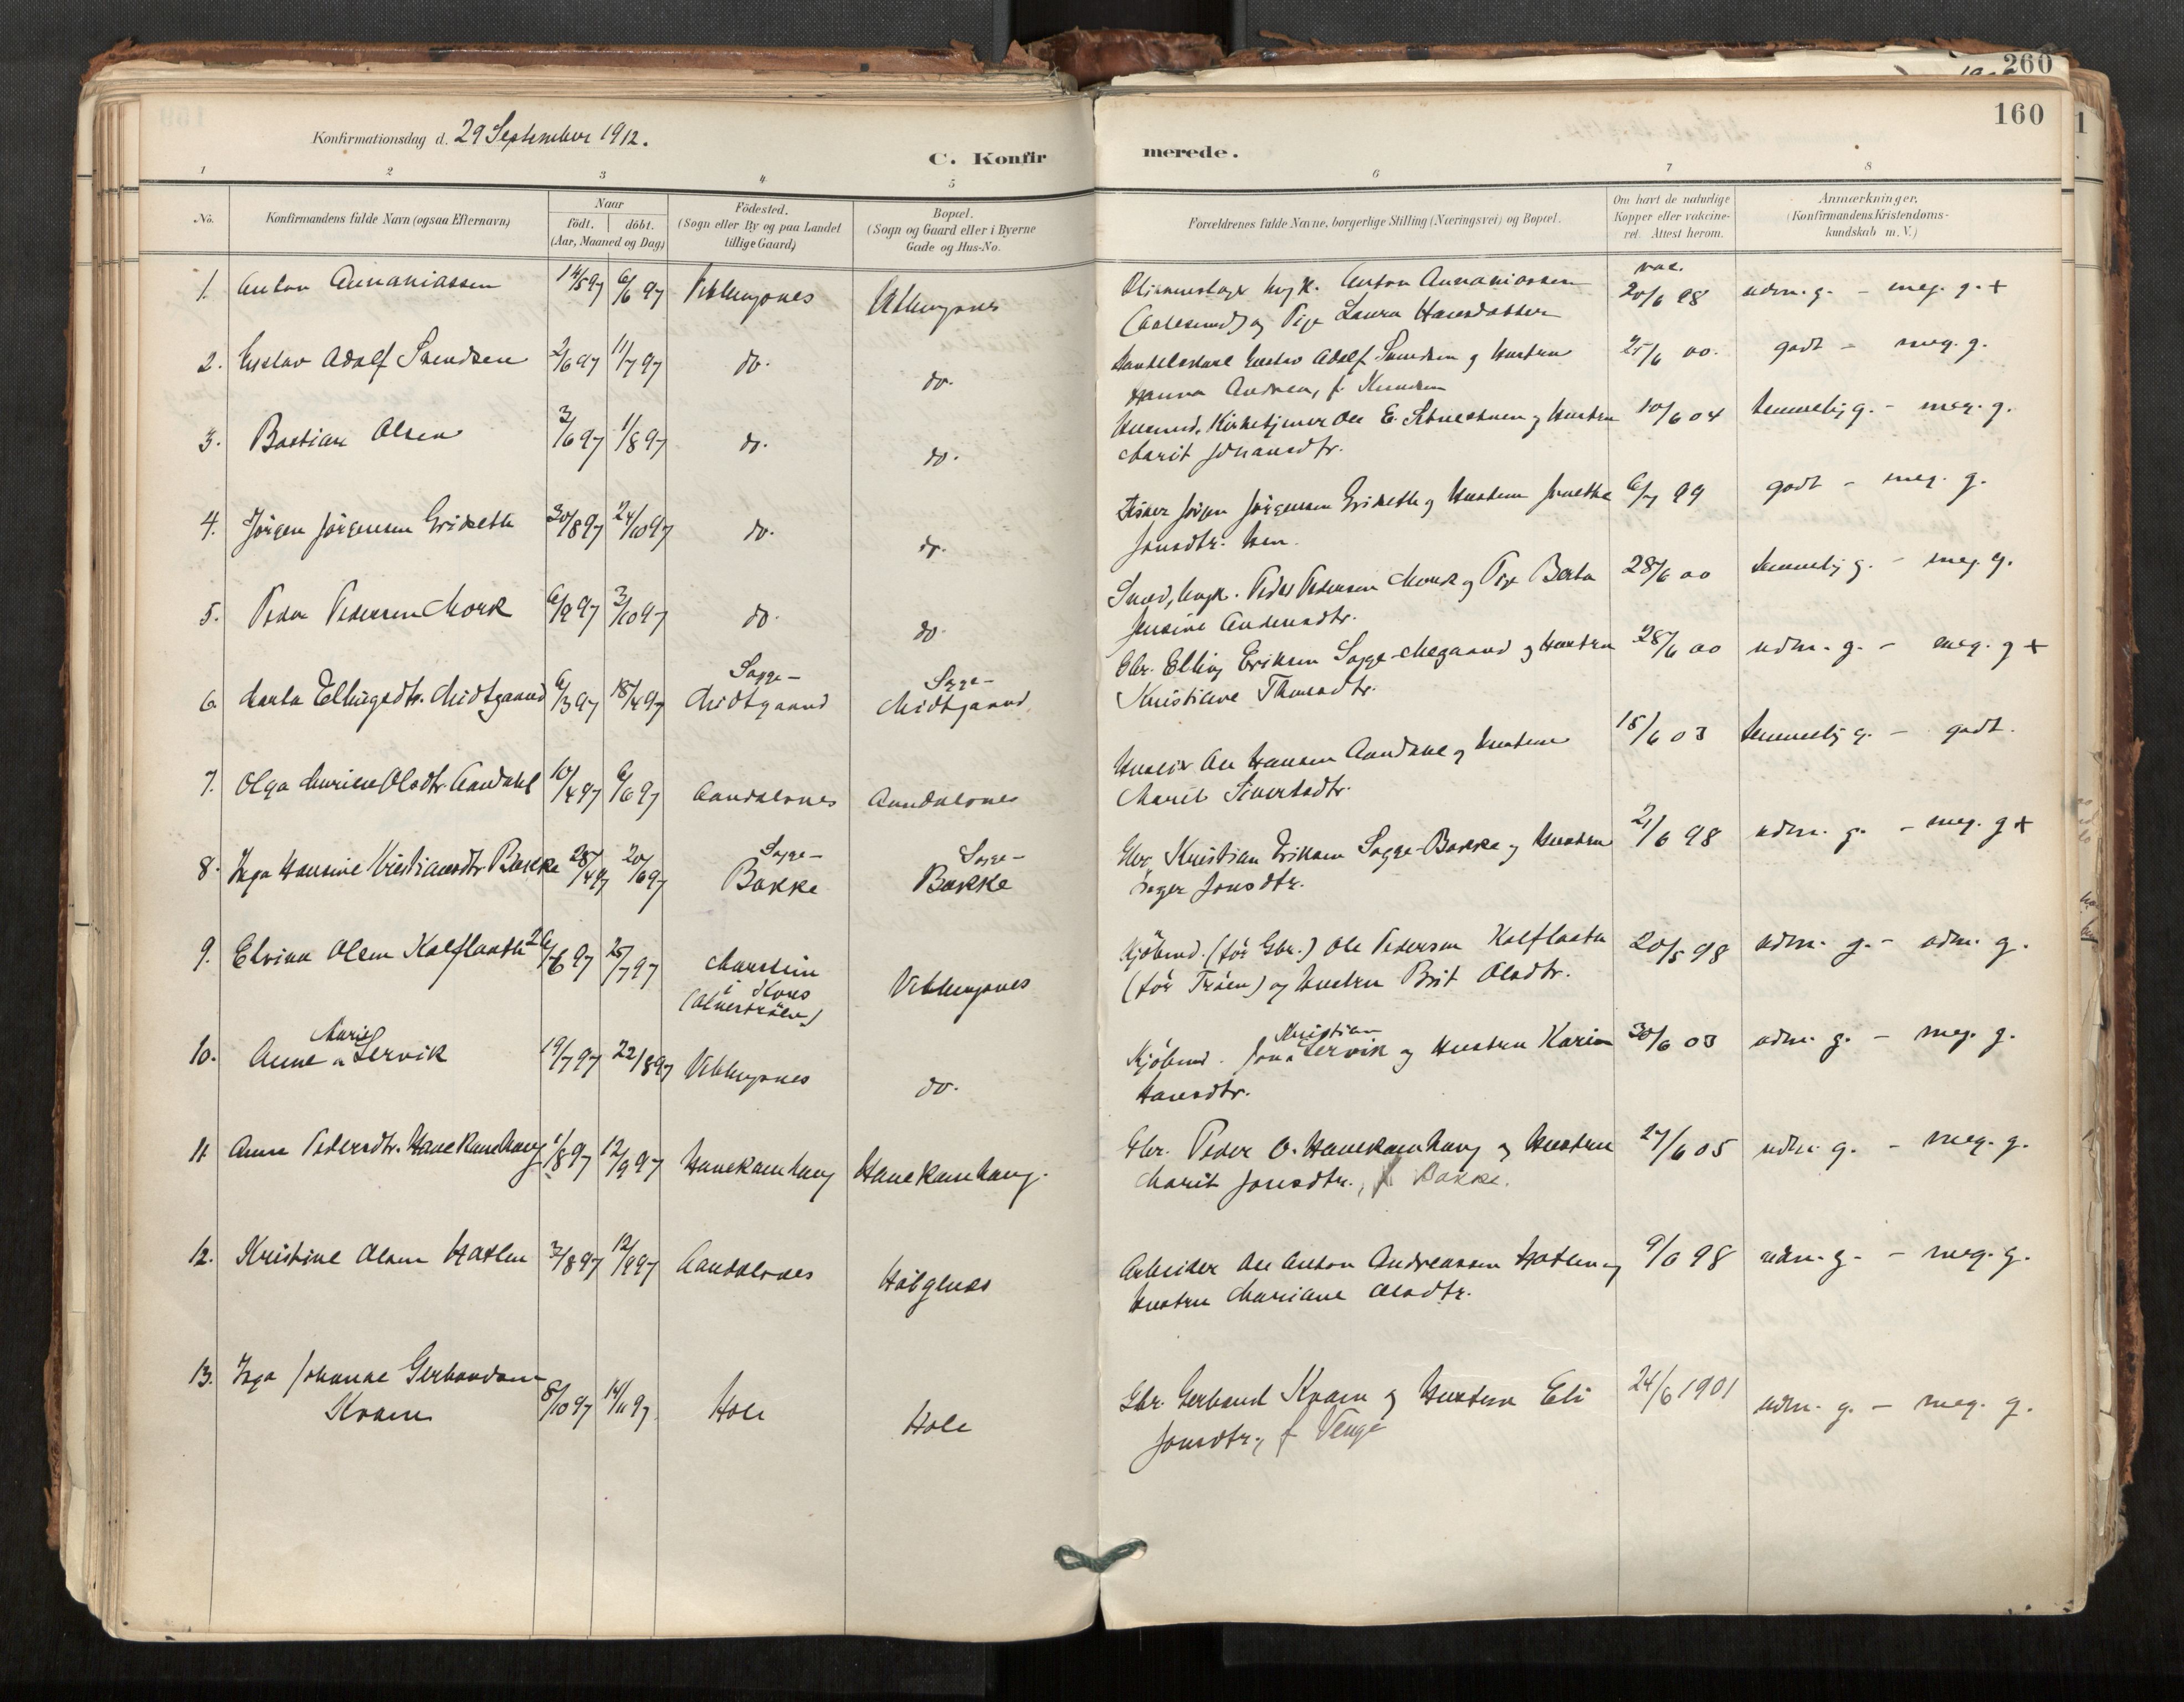 260
160
Konfirmationsdag d. 29 September 1912.
C. Konfir
merede.
1 2 3 4 5 6 7 8
No.
Konfirmandens fulde Navn (ogsaa Efternavn)
Naar
födt. döbt.
(Aar, Maaned og Dag)
Födested.
(Sogn eller By og paa Landet
tillige Gaard)
Bopæl.
(Sogn og Gaard eller i Byerne
Gade og Hus-No.
Forældrenes fulde Navne, borgerlige Stilling (Næringsvei) og Bopæl.
Om havt de naturlige
Kopper eller vakcine-
ret. Attest herom.
Anmærkninger.
(Konfirmandens Kristendoms-
kundskab m. V.)
1. Anton Annaniassen 14/5 97 6/6 97 Veblungsnes Veblungsnes
ugk. Anton Annaniassen
(Aalesund) og Pige Laura Hansdatter
vac.
20/6 98 udm. g. - meg. g. +
2. Gustav Adolf Svendsen 2/6 97 11/7 97 do. do.
Gustav Adolf Svendsen og Hustru
Hanna Andrea, f. Knudsen
25/6 00. godt - meg. g.
3. Bastian Olsen 3/6 97 1/8 97 do. do.
Kirketjener Ole E. og Hustru
Marit Johansdtr.
10/6 04 temmelig g. - meg. g.
4. Jörgen Jörgensen Griseth 30/8 97 24/10 97 do. do.
Fisker Jörgen Jörgensen Griseth og Hustru
Jonsdtr.
6/7 99 godt - meg. g.
5. Peder Pedersen Mork 6/9 97 3/10 97 do. do.
Smed, ugk. Peder Pedersen Mork og Pige Berta
Jensine Andersdtr.
28/6 00 temmelig g. - meg. g.
6. Marta Ellingsdtr. Midtgaard 6/3 97 18/4 97 Sogge-
Midtgaard Sogge-
Midtgaard
Gbr. Elling Eriksen Sogge-Megaard og Hustru
Kristiane Thomasdtr.
28/6 00 udm. g. - meg. g +
7. Olga Marie Olsdtr. Aandahl 10/4 97 6/6 97 Aandalsnes Aandalsnes
Ole Hansen Aandahl og Hustru
Marit Sivertsdtr.
15/6 03 temmelig g. - godt.
8. Inga Hansine Kristiansdtr. Bakke 28/4 97 20/6 97 Sogge-
Bakke Sogge-
Bakke
Gbr. Kristian Eriksen Sogge-Bakke og Hustru
Inger Jonsdtr.
21/6 98 udm. g. - meg. g +
9. Elvina Olsen Kalflaath 26/6 97 25/7 97 Marstein
i Kors
Veblungsnes
Kjöbmd. (för Gbr.) Ole Pedersen Kalflaath
(för Tröen) og Hustru Brit Olsdtr.
20/5 98 udm. g. - udm. g.
10. Anne Marie Lervik 19/7 97 22/8 97 Veblungsnes do.
Kjöbmd. Jon Kristian Lervik og Hustru Karin
Hansdtr.
30/6 03 udm. g. - meg. g.
11. Anne Pedersdtr. Hanekamhaug 1/8 97 12/9 97 Hanekamhaug Hanekamhaug.
Gbr. Peder O. Hanekamhaug og Hustru
Marit Jonsdtr., f. Bakke.
27/6 05 udm. g. - meg. g.
12. Kristine Olsen Hatlen 3/8 97 12/9 97 Aandalsnes Halgenes
Arbeider Ole Anton Andreassen Hatlen og
Hustru Mariane Olsdtr.
9/6 98 udm. g. - meg. g.
13. Inga Johanne Gerhardsen
Kvam 8/10 97 14/11 97 Hole Hole
Gbr. Gerhard Kvam og Hustru Eli
Jonsdtr., f Venge
24/6 1901 udm. g. - meg. g.